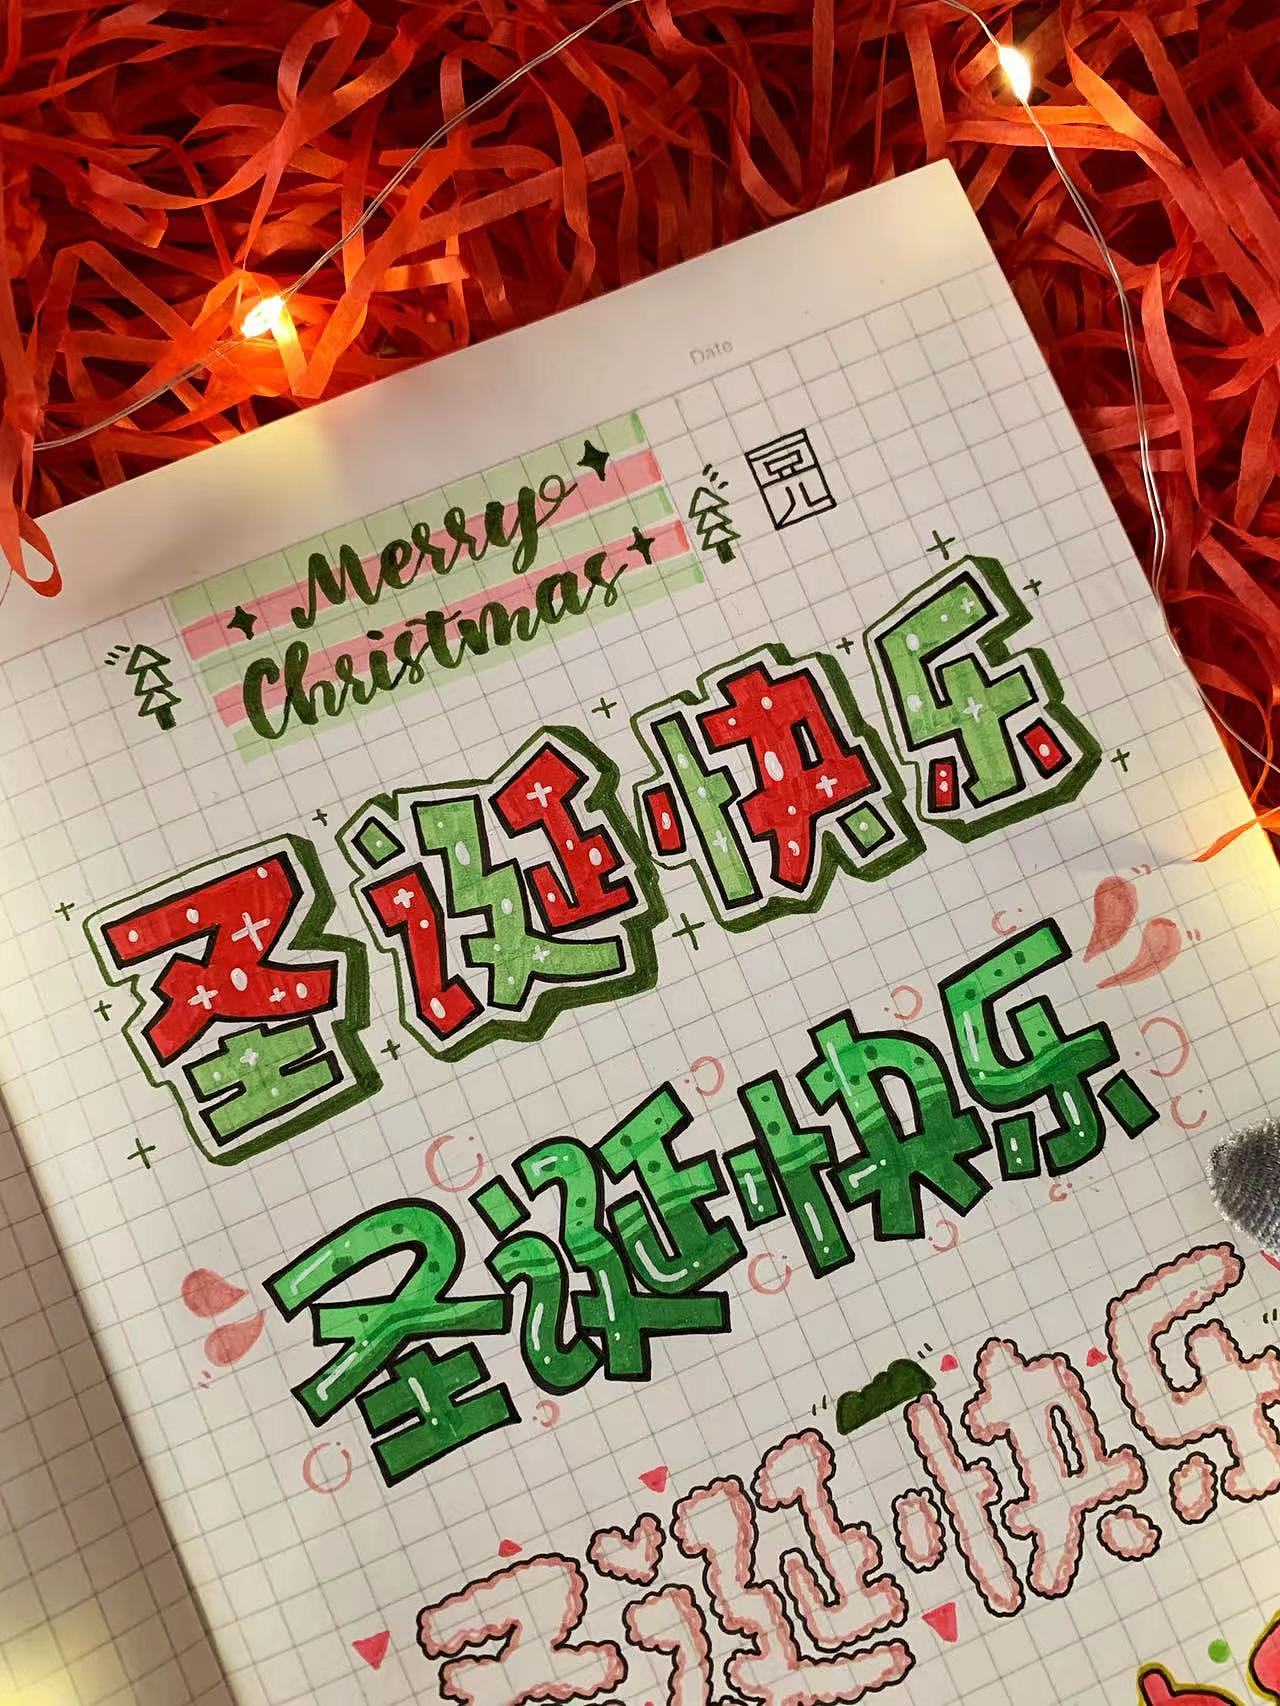 Date
Merry
Christmas
豆儿
圣诞快乐
圣诞快乐
圣诞快乐